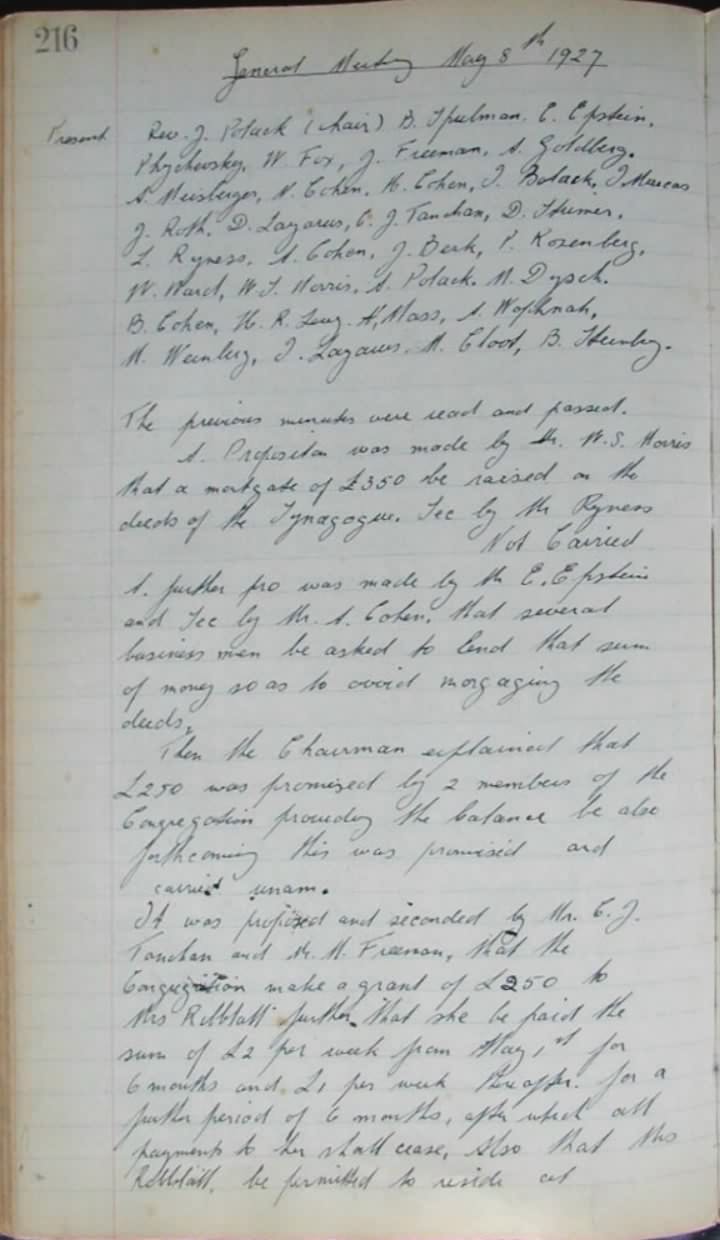 216
General Meeting May 8th 1927
Present Rev. J. Polack (chair) B. Spulman. E. Epstein,
Phychovsky, W. Fox, J. Freeman, A. Goldberg.
A. Weisberger, N. Cohen. H. Cohen, J. Bolack, J Marcus
J. Roth, D. Lazarus, C. J. Tanchan, D. Steiner,
L. Ryness, A. Cohen, J. Berk, P. Rosenberg,
W. Ward, W. S. Morris, A. Polack. M. Dysch.
B. Cohen, H. R. Levy. H, Mass, A.
M. Weinberg, J. Lazarus. M. Cloot, B. Steinberg.
The previous minutes were read and passed.
A. Propositon was made by Mr. W.S. Morris
that a mortgate of £350 be raised on the
deeds of the Synagogue. Sec by Mr Ryness
Not Carried
A. further pro was made by Mr E. Epstein
and Sec by Mr. A. Cohen. that several
business men be asked to lend that sum
of money so as to avoid morgaging the
deeds.
Then the Chairman explained that
£250 was promised by 2 members of the
Congregation providing the balance be also
forthcoming this was promised and
carried unam.
It was proposed and seconded by Mr. C. J.
Tanchan and Mr. M. Freeman, that the
Congregation make a grant of £250 to
Mrs Rebblatt further. That she be paid the
sum of £2 per week from May 1st for
6 months and £1 per week thereafter. for a
further period of 6 months, after which all
payments to her shall cease, Also that Mrs
Rebblatt. be permitted to reside at